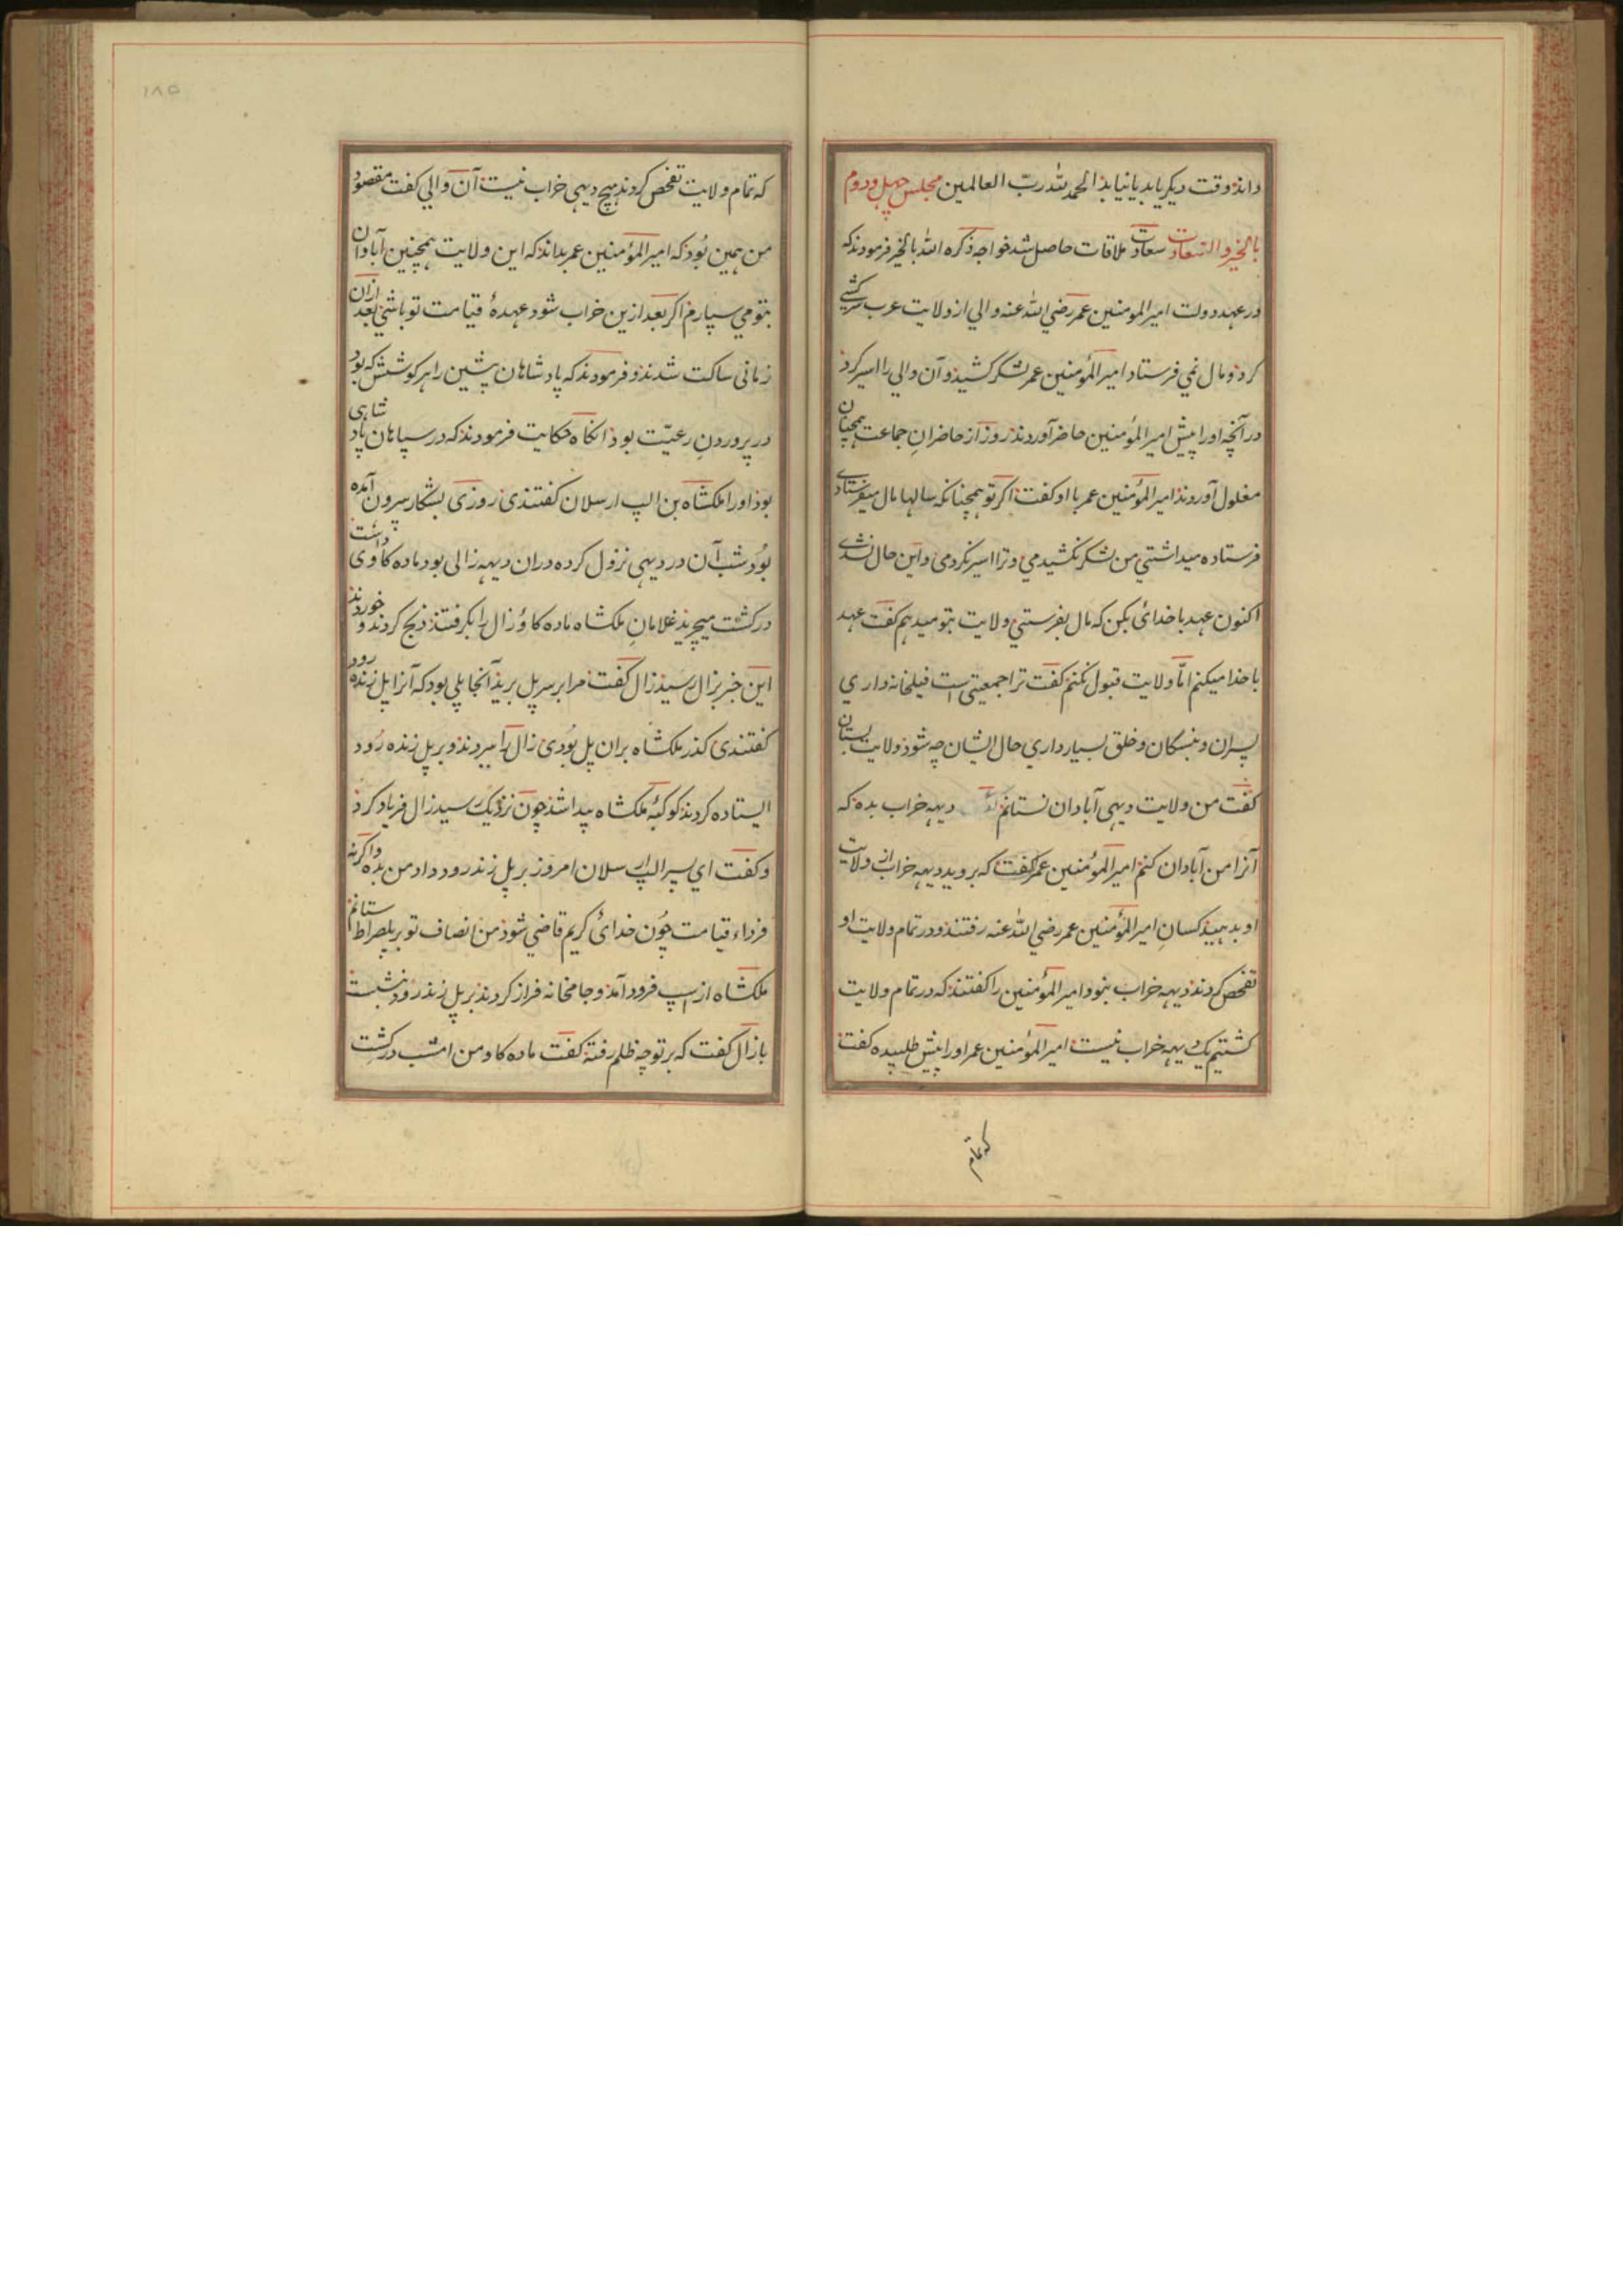 داند وقت دیکر یابد یا نیابد الحمد لله ربّ العالمین مجلس چهل و دوم
بالخیر و السعادت سعادت ملاقات حاصل شد خواجه ذکره الله بالخیر فرمودند که
در عهد دولت امیر المومنین عمر رضی الله عنه والی از ولایت عرب سرکشی
کرد و مال نمی فرستاد امیر المؤمنین عمر لشکر کشید و آن والی را اسیر کرد
در آنچه او را پیش امیر المؤمنین حاضر آوردند روز از حاضران جماعت همچنان
مغلول آوردند امیر المؤمنین عمر با او کفت اکر تو همچنانکه سالها مال میفرستادی
فرستاده میداشتی من لشکر نکشیدمی و ترا اسیر نکردمی و این حال نشدی
اکنون عهد با خدای بکن که مال بفرستی ولایت بتو میدهم کفت عهد
با خدا میکنم امّا ولایت قبول نکنم کفت ترا جمعیتی است فیلخانه داری
پسران و بندکان و خلق بسیار داری حال ایشان چه شود ولایت بستان
کفت من ولایت دیهی آبادان نستانم دیهه خراب بده که
آنرا من آبادان کنم امیر المؤمنین عمر کفت که بروید دیهه خراب از ولایت
او بدهید کسان امیر المؤمنین عمر رضی الله عنه رفتند و در تمام ولایت او
تفحص کردند دیهه خراب نبود امیر المؤمنین را کفتند که در تمام ولایت
کشتیم یک دیهه خراب نیست امیر المؤمنین عمر او را پیش طلبیده کفت
که تمام
۱۸۵
که تمام ولایت تفحص کردند هیچ دیهی خراب نیست آن والی کفت مقصود
من همین بود که امیر المؤمنین عمر بداند که این ولایت همچنین آبادان
بتو می سپارم اکر بعد ازین خراب شود عهدهٔ قیامت تو باشی بعد ازان
زمانی ساکت شدند و فرمودند که پادشاهان پیشین را هر کوشش که بود
در پروردن رعیّت بود انکاه حکایت فرمودند که در سپاهان پادشاهی
بود او را ملکشاه بن الپ ارسلان کفتندی روزی بشکار بیرون آمده
بود شب آن در دیهی نزول کرده دران دیهه زالی بود ماده کاوی داشت
در کشت میچرید غلامان ملکشاه ماده کاو زال را بکرفتند ذبح کردند و خوردند
این خبر بزال رسید زال کفت مرا بر سر پل برید آنجا پلی بود که آنرا پل زنده رود
کفتندی کذر ملکشاه بران پل بودی زال را ببردند و بر پل زنده رود
ایستاده کردند کوکبهٔ ملکشاه پیدا شد چون نزدیک رسید زال فریاد کرد
و کفت ای پسر الپ ارسلان امروز بر پل زندرود داد من بده واکرنه
فرداء قیامت چون خدای کریم قاضی شود من انصاف تو بر پلصراط ستانم
ملکشاه از اسپ فرود آمد و جامخانه فراز کردند بر پل زندرود نشست
با زال کفت که بر تو چه ظلم رفته کفت ماده کاو من امشب در کشت